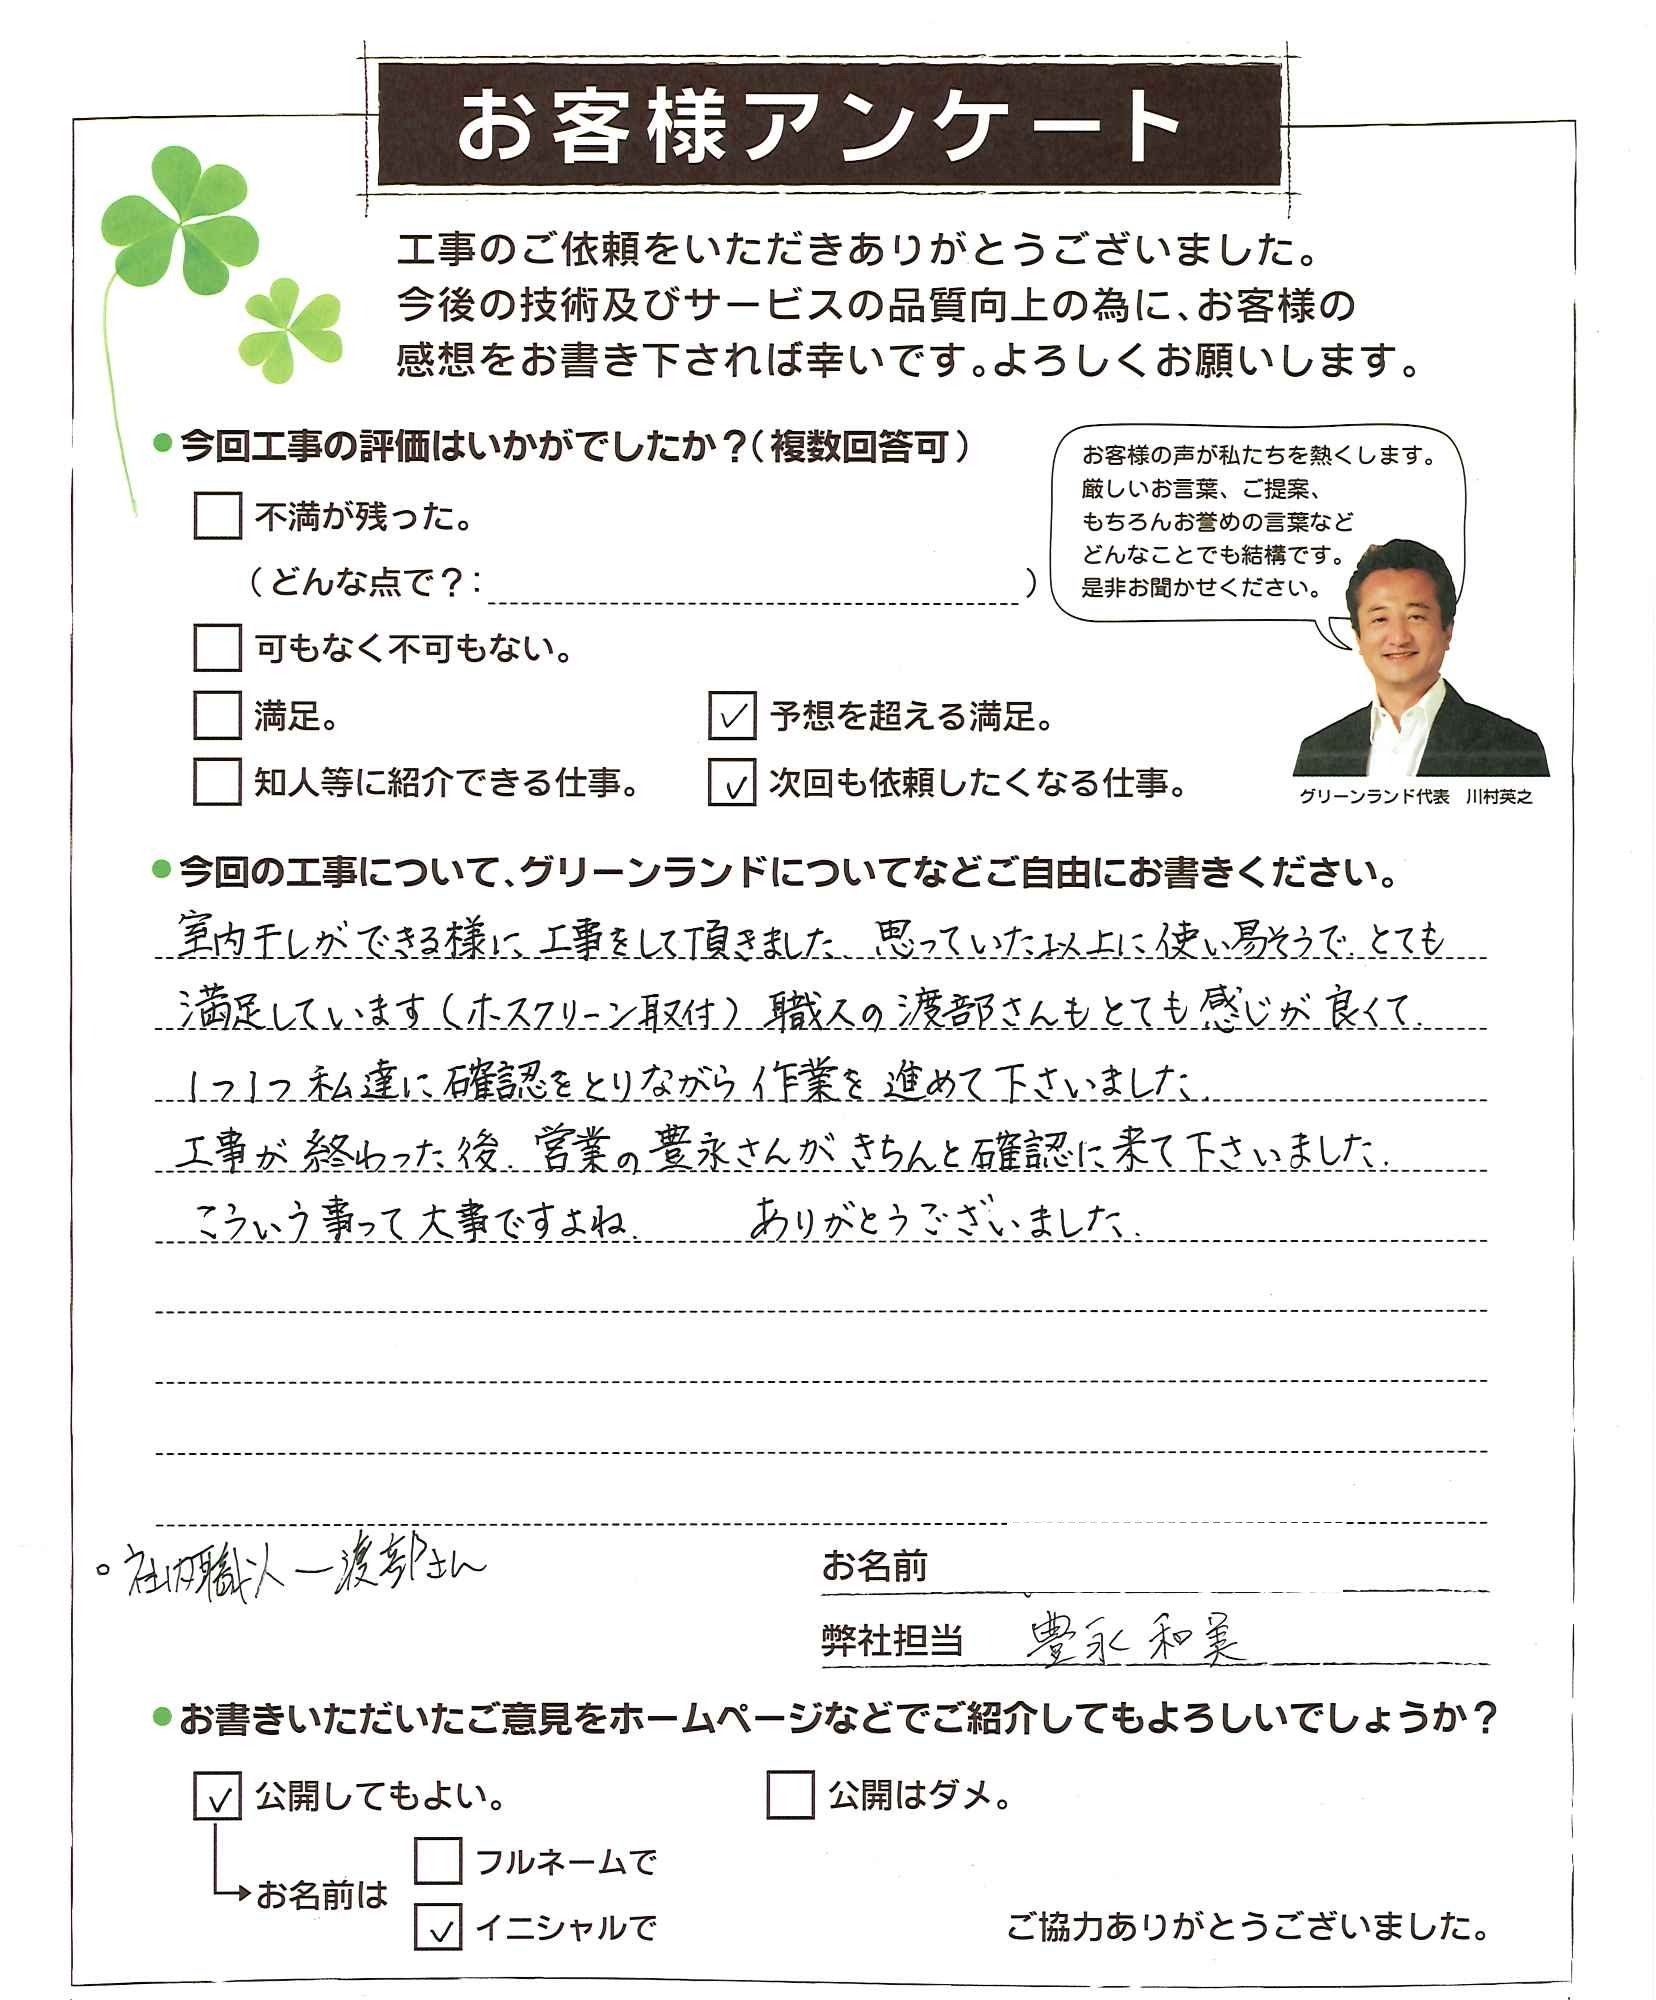 お客様アンケート
工事のご依頼をいただきありがとうございました。
今後の技術及びサービスの品質向上の為に、お客様の
感想をお書き下されば幸いです。よろしくお願いします。
●今回工事の評価はいかがでしたか？（複数回答可）
お客様の声が私たちを熱くします。
厳しいお言葉、ご提案、
もちろんお誉めの言葉など
どんなことでも結構です。
是非お聞かせください。
グリーンランド代表　川村英之
□ 不満が残った。
（どんな点で？：　　　　）
□ 可もなく不可もない。
□ 満足。　☑ 予想を超える満足。
□ 知人等に紹介できる仕事。　☑ 次回も依頼したくなる仕事。
●今回の工事について、グリーンランドについてなどご自由にお書きください。
室内干しができる様に、工事をして頂きました。思っていた以上に使い易そうで、とても
満足しています（ホスクリーン取付）職人の渡部さんもとても感じが良くて、
1つ1つ私達に確認をとりながら作業を進めて下さいました。
工事が終わった後、営業の豊永さんがきちんと確認に来て下さいました。
こういう事って大事ですよね。　ありがとうございました。
。社内職人ー渡部さん
お名前
弊社担当　豊永和美
●お書きいただいたご意見をホームページなどでご紹介してもよろしいでしょうか？
☑ 公開してもよい。　□ 公開はダメ。
→お名前は
□ フルネームで
☑ イニシャルで
ご協力ありがとうございました。